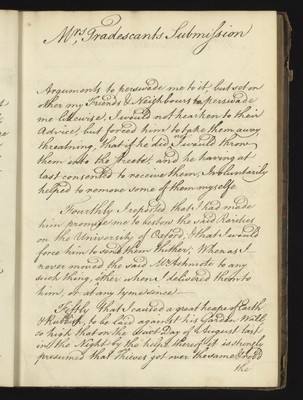 Mrs Tradescants Submission
Arguments to perswade me to it, but set on
other my Friends & Neighbours to perswade
me likewise, I would not hearken to their
Advice, but forced him to take them away
threatning, that if he did not, I would throw
them into the streets, and he having at
last consented to receive them, I voluntarily
helped to remove some of them myselfe
Fourthly I reported that I had made
him promise me to bestow the said Rarities
on the University of Oxford, & that I would
force him to send them thither, Whereas I
never moved the said Mr Ashmole to any
such thing, either when I delivered them to
him, or at any tyme since
Fiftly that I caused a great heape of Earth
& Rubbish, to be laid against his Garden Wall
so high that on the first Day of August last
in the Night by the help thereof it is strongly
presumed that Thieves got over the same & rob'd
the